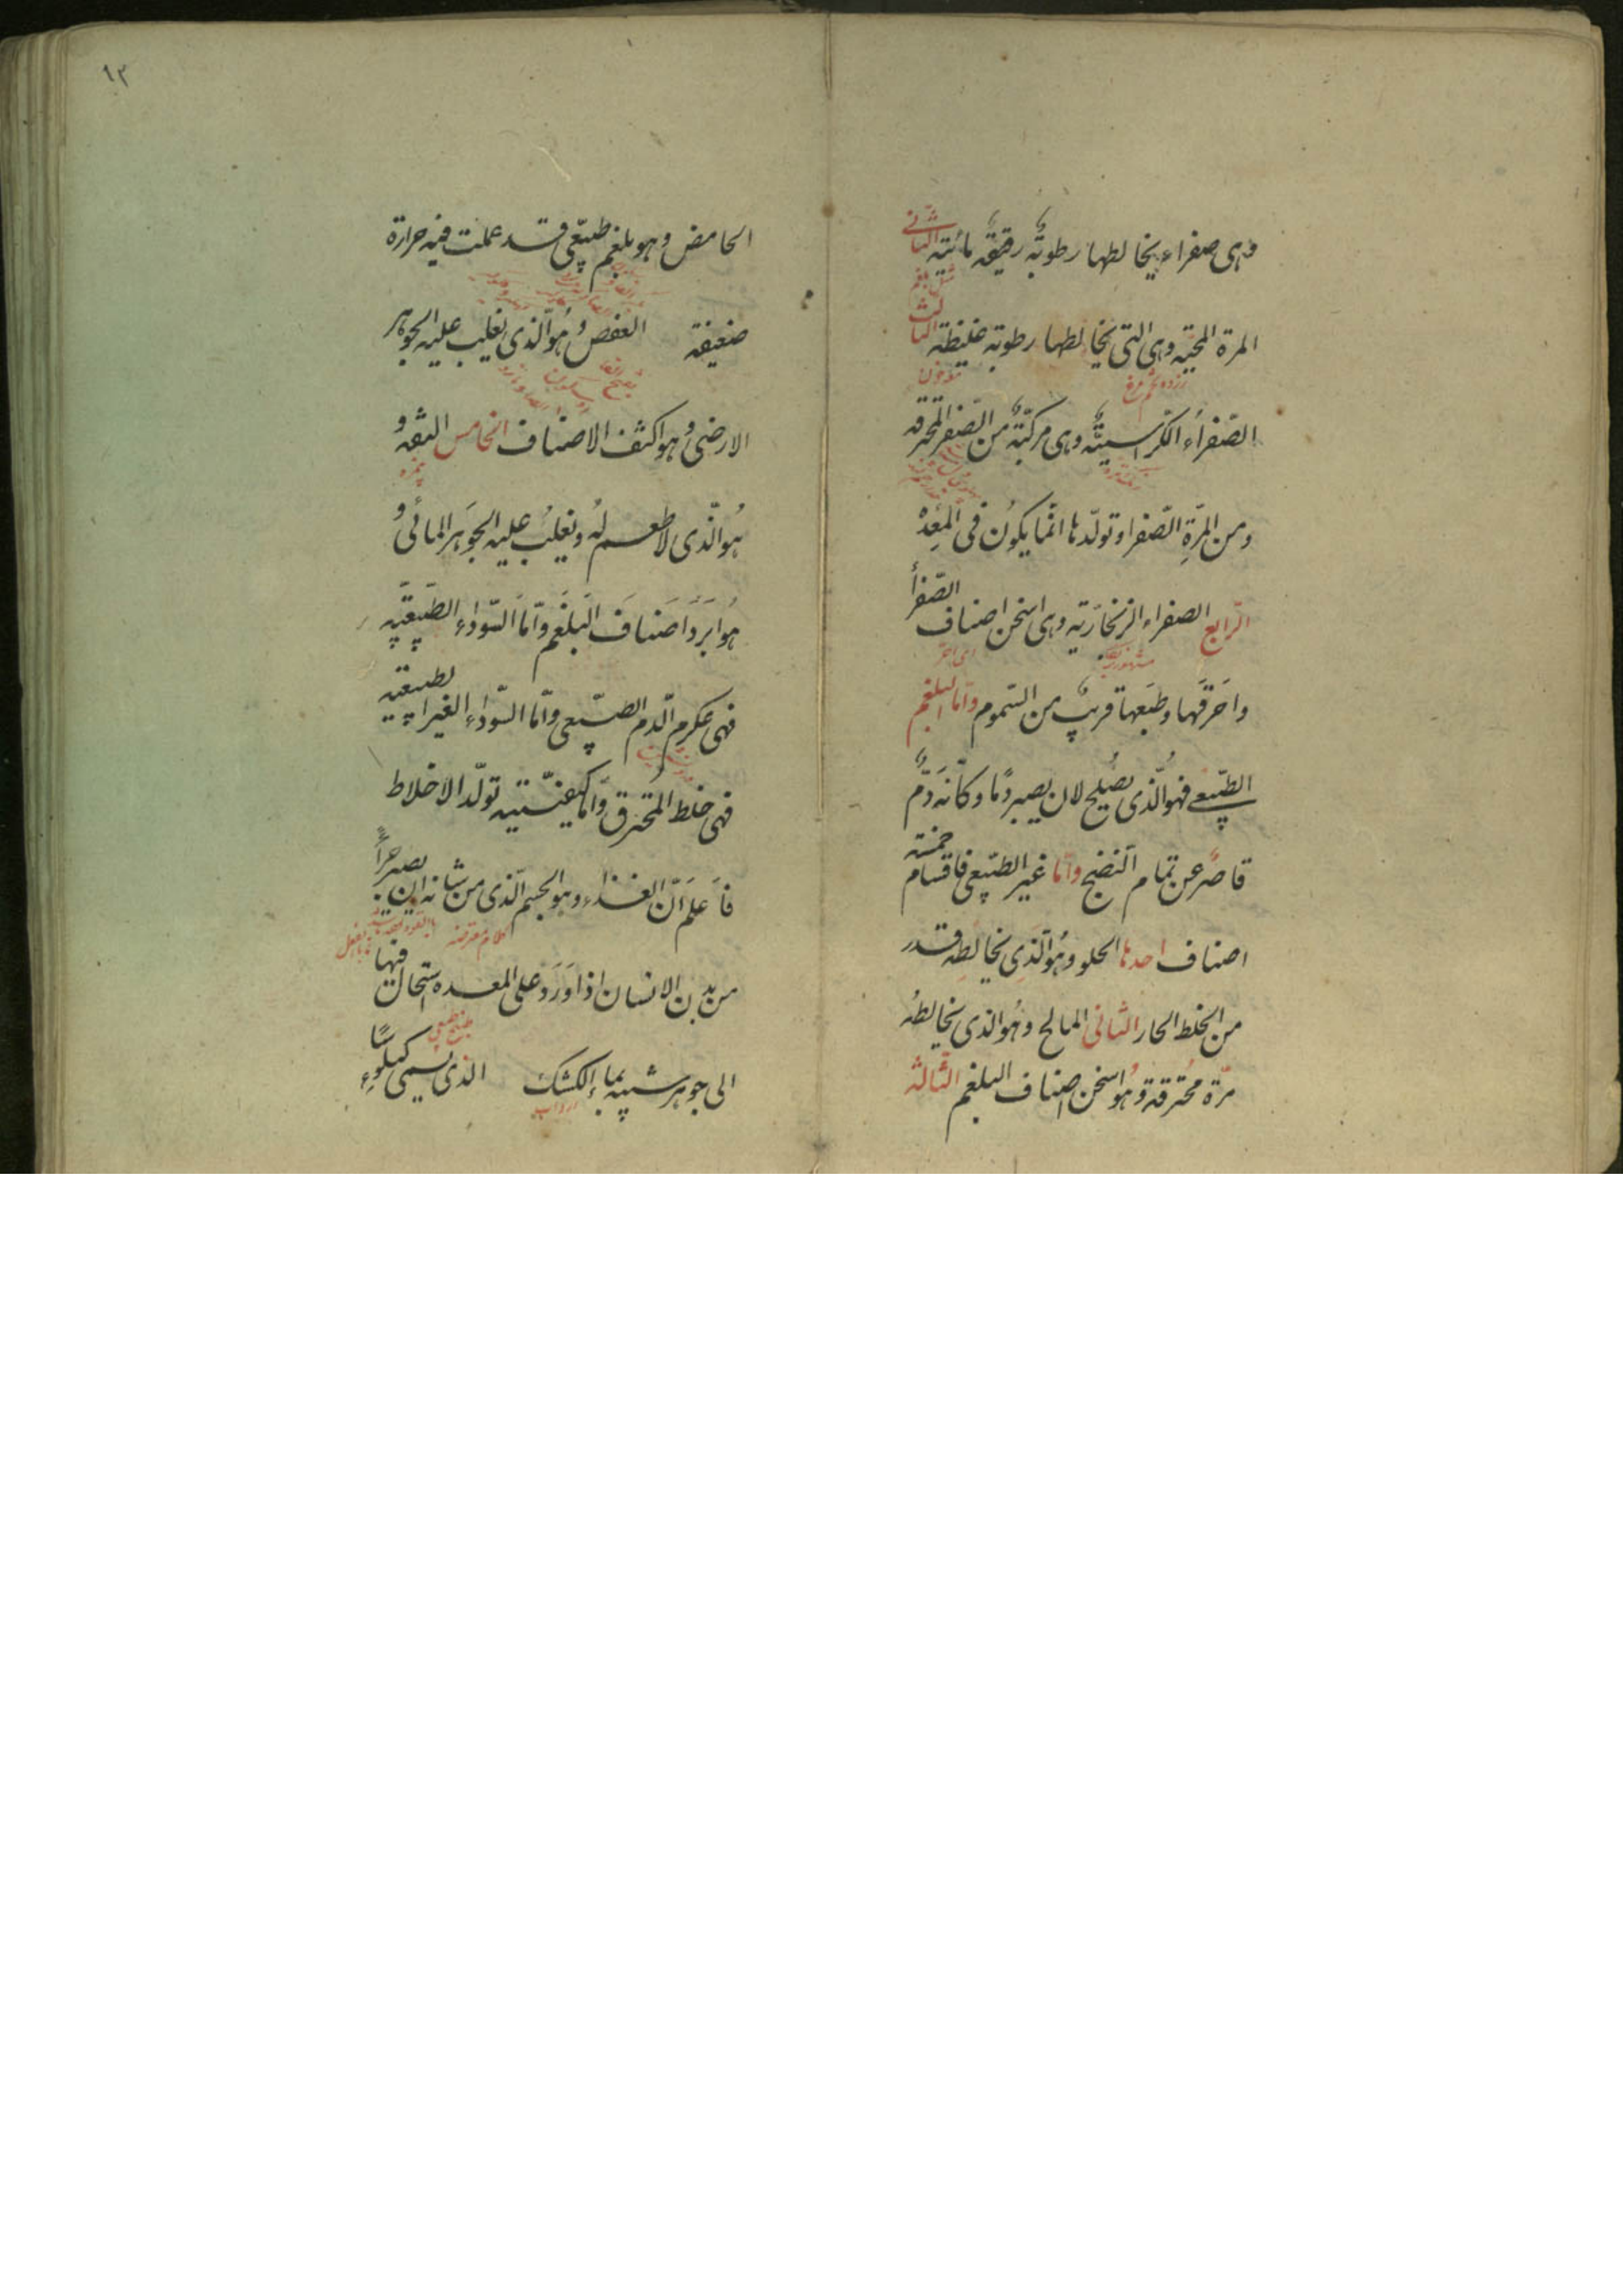 وهی صفراء یخالطها رطوبة رقیقة مائیة الثانی
المرة المحیة وهی التی یخالطها رطوبة غلیظة الثالث
زرده تخم مرغ
الصفراء الکراسیة وهی مرکبة من الصفرا المحترقه
ومن المرّةِ الصّفرا وتولّدها انّما یکونُ فی المعِدهْ
الرّابع الصفراء الزنخارّیه وهی اسخن اصناف الصّفرأ
واحَرقَها وطبَعها قریبٌ من السّموم وامّا البلغم
الطبّیعی فهوالّذی یصلح لان یصیر دمًا وکانّه دمٌ
قاصرٌ عن تمام النضج وامّا غیر الطبّیعی فاقسام خمسته
اصناف احدها الحلو وهُوالّذی یخالطِه قدر
من الخلط الحار الثانی المالح وهُوالذی یخالطُه
مرّة محُترقة وهُو اسخن اصناف البلغم الثّالثه
١٢
الحامض وهو بلغم طبیعّی قد عملت فیه حرارة
ضعیفة العفص وهُوالّذی یغلب علیه الجوهر
الارضی وهو اکثف الاصناف الخامس التفِه و
هُوالّذی لا طعم لهُ ویغلبُ علیه الجوَهَر المائی و
هُو ابَردَ اصَنافَ البَلغَم وامّا السّوداء الطبیَعیّة
فهی عکرم الّدم الصبّیعی وامّا السّوداء الغیر الطبیعیه
فهی خلط المُحترق وامّا کیفیّتیه تولّد الاخلاط
فأعلَم انّ الغذاء وهو الجسم الّذی من شانه ان یصیر جزأً
کلام معترضه
من بدن الانسان اذا وَرَد علی المعده استحال فیها
الی جوهر شبیه بماء الکشک الذی یسمی کیلوسًا